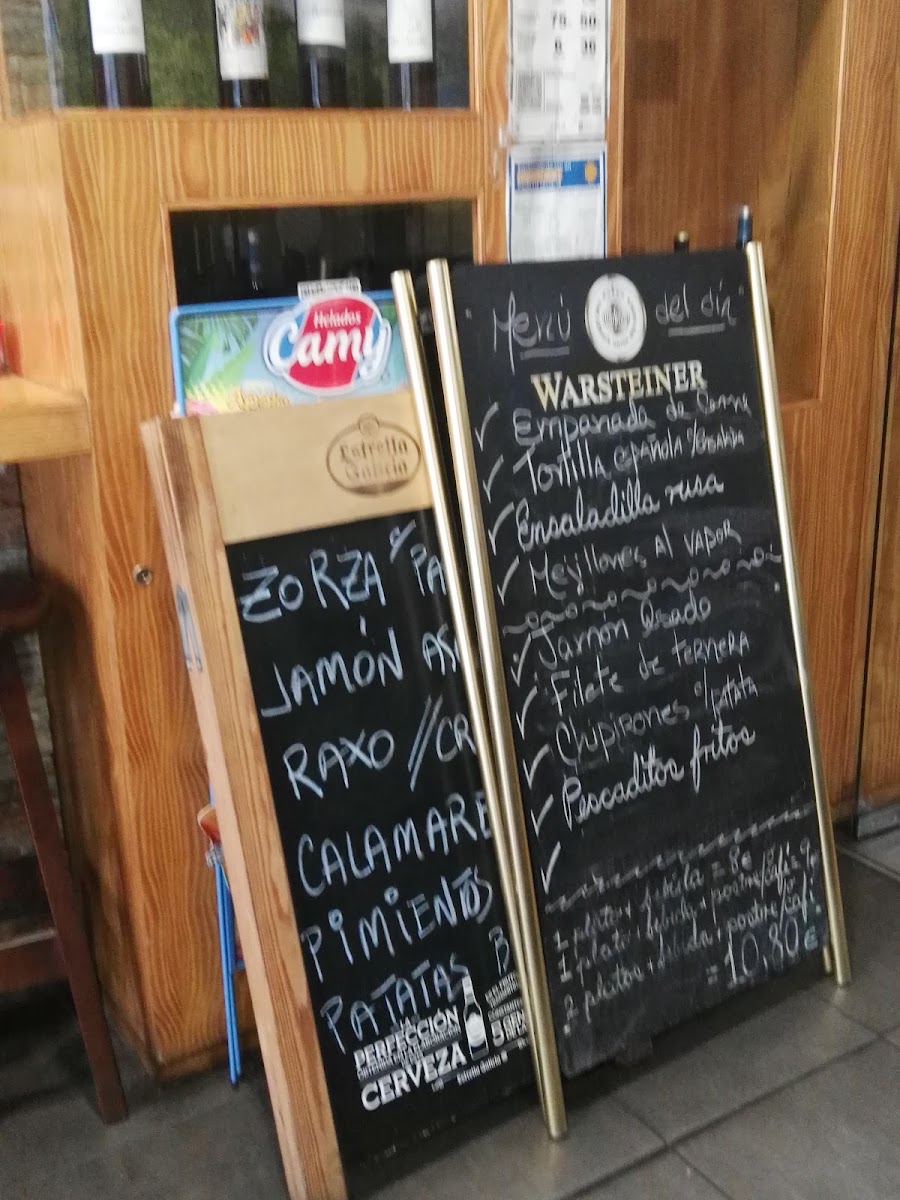 Helados
Camy
Estrella
Galicia
ZORZA c/ PA
JAMÓN AS
RAXO //CR
CALAMARE
PIMIENTOS
PATATAS B
PERFECCIÓN
CERVEZA
5
Estrella Galicia
"Menú del día"
WARSTEINER
Empanada de Carne
Tortilla española
Ensaladilla rusa
Mejillones Al VAPOR
Jamón Asado
Filete de TERNERA
Chipirones c/patata
Pescaditos fritos
1 plato + bebida = 8€
1 plato + bebida + postre/café = 9
2 platos + bebida + postre/café
= 10,80€